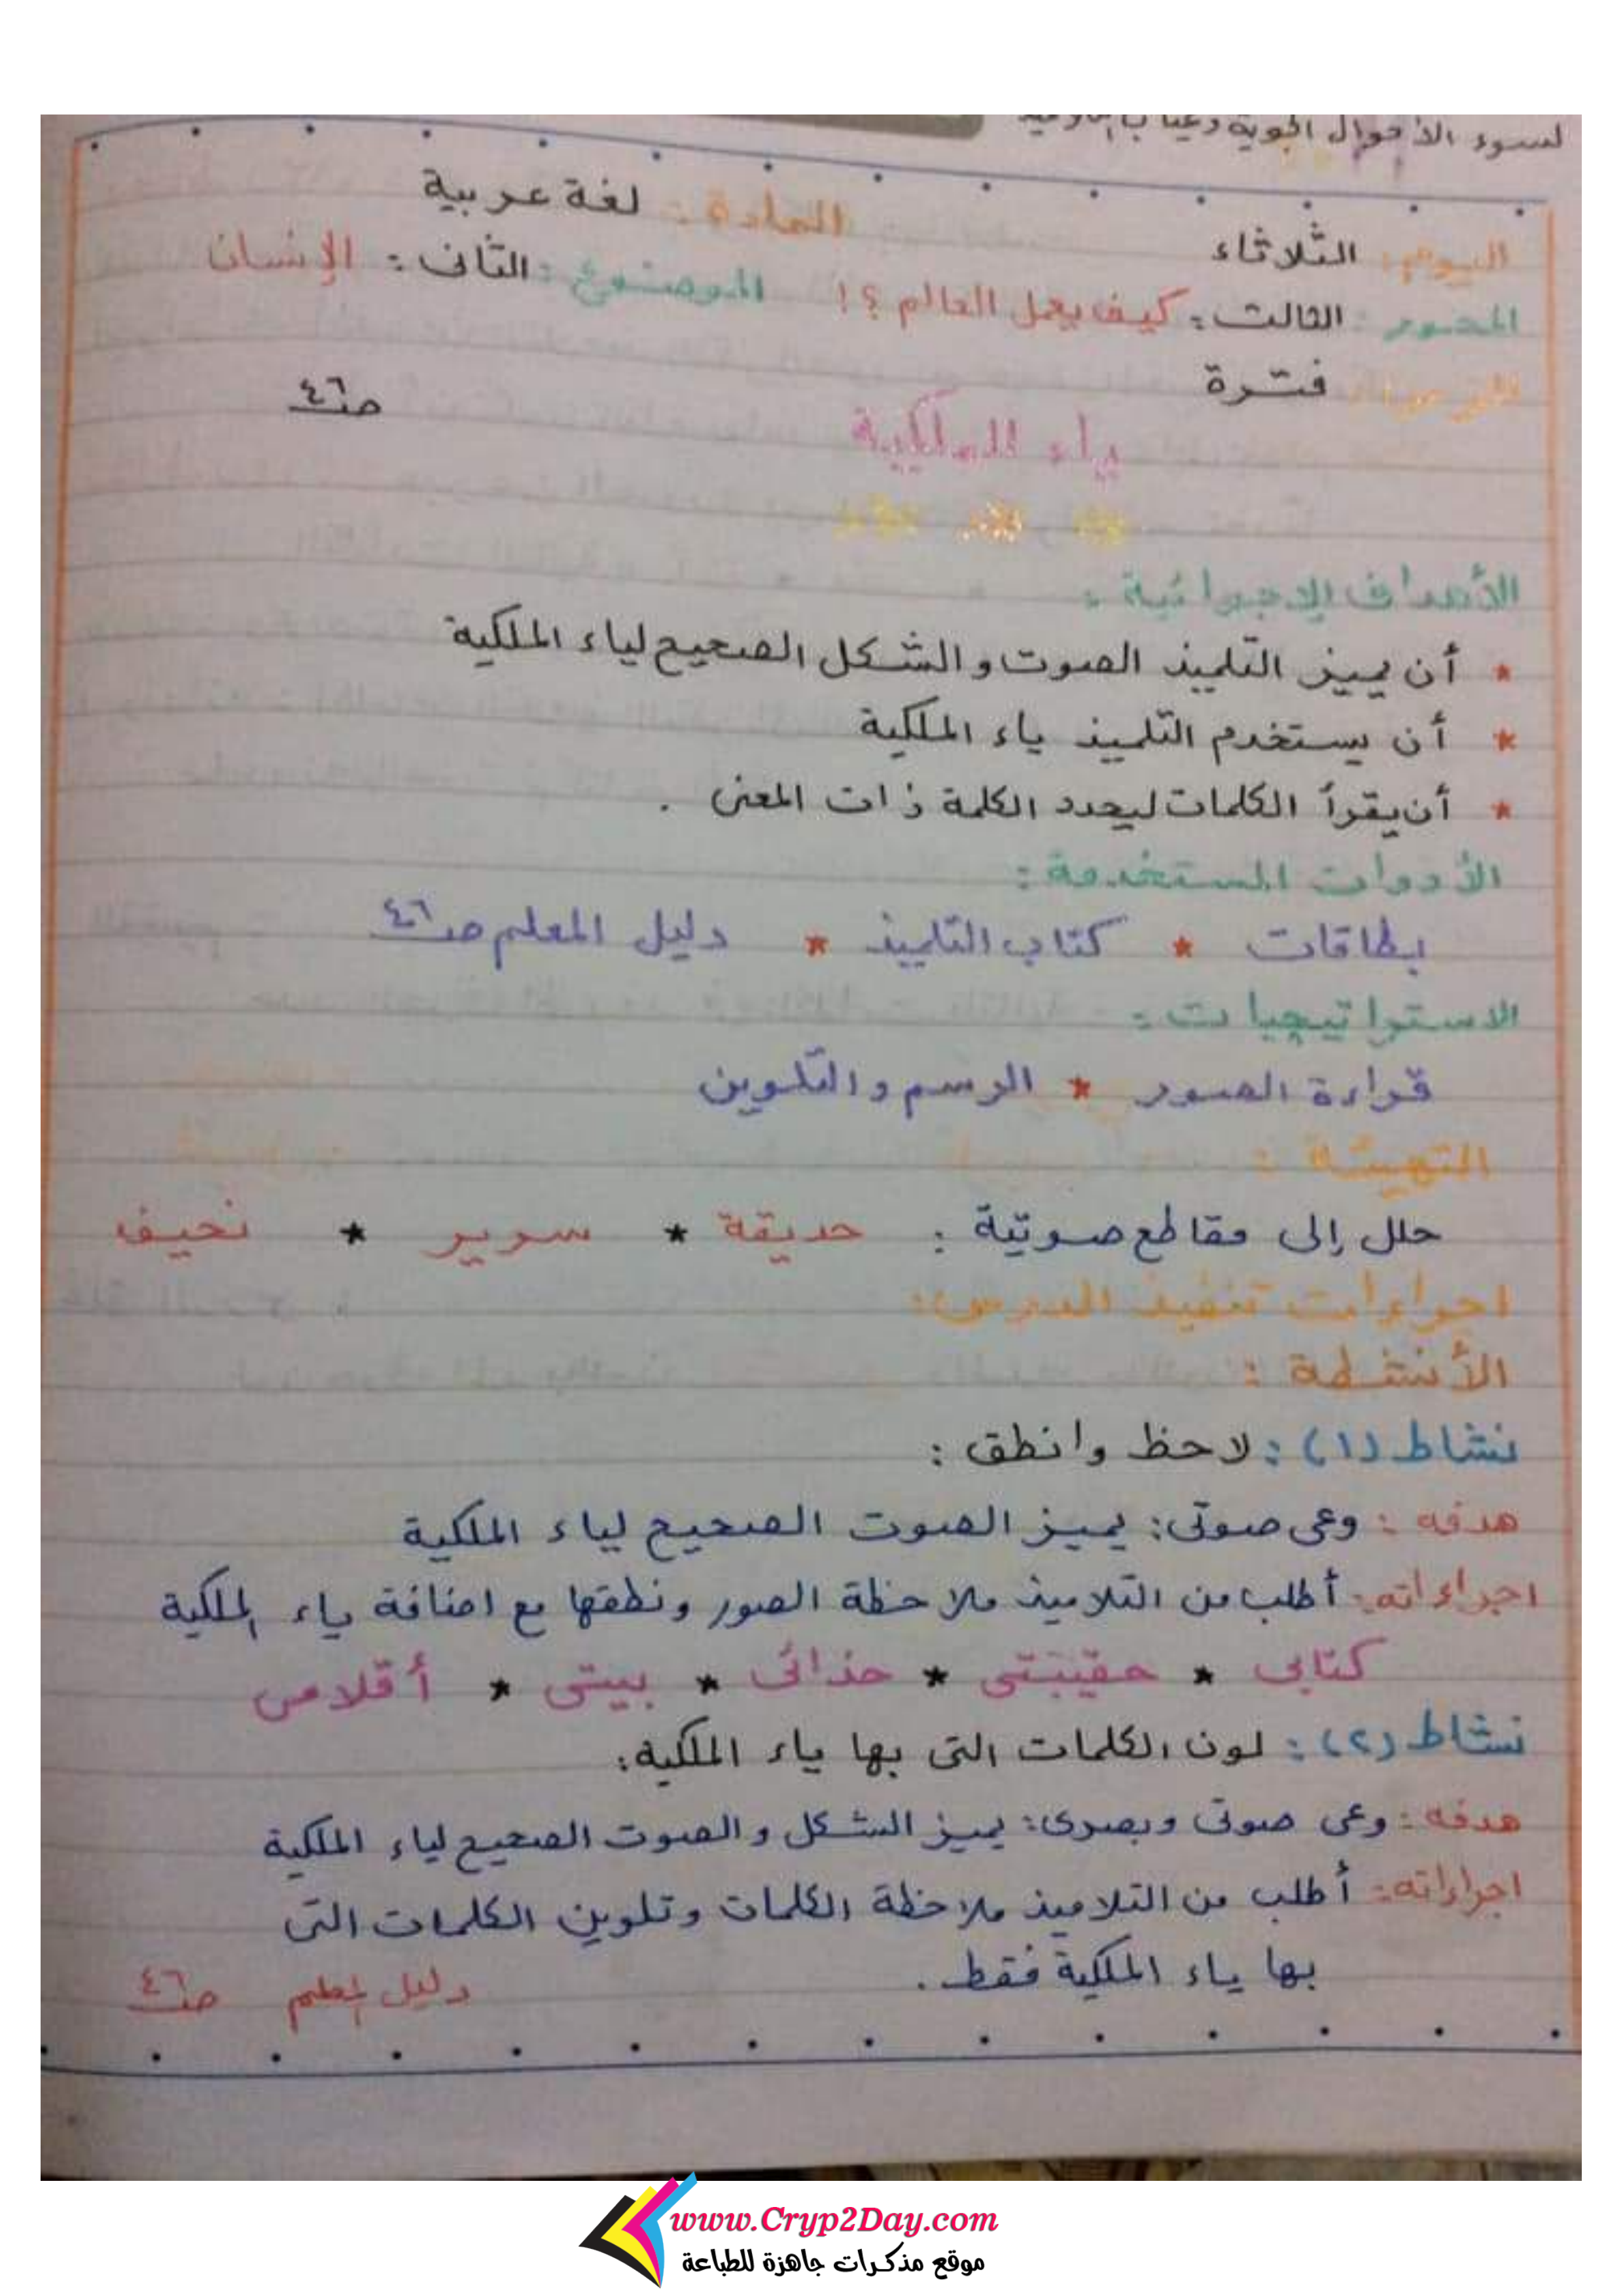 لسوء الأحوال الجوية وغياب
اليوم: الثلاثاء المادة: لغة عربية
المحور: الثالث: كيف يعمل العالم ؟! الموضوع: الثانى: الإنسان
فترة
ياء الملكية صـ٤٦
الأهداف الإجرائية:
* أن يميز التلميذ الصوت والشكل الصحيح لياء الملكية
* أن يستخدم التلميذ ياء الملكية
* أن يقرأ الكلمات ليحدد الكلمة ذات المعنى .
الأدوات المستخدمة:
بطاقات * كتاب التلميذ * دليل المعلم صـ٤٦
الاستراتيجيات:
قراءة الصور * الرسم والتلوين
التهيئة:
حلل إلى مقاطع صوتية: حديقة * سرير * نحيف
اجراءات تنفيذ الدرس:
الأنشطة:
نشاط (١): لاحظ وانطق:
هدفه: وعى صوتى: يميز الصوت الصحيح لياء الملكية
اجراءاته: أطلب من التلاميذ ملاحظة الصور ونطقها مع اضافة ياء الملكية
كتابى * حقيبتى * حذائى * بيتى * أقلامى
نشاط (٢): لون الكلمات التى بها ياء الملكية:
هدفه: وعى صوتى وبصرى: يميز الشكل والصوت الصحيح لياء الملكية
اجراءاته: أطلب من التلاميذ ملاحظة الكلمات وتلوين الكلمات التى
بها ياء الملكية فقط .
دليل المعلم صـ٤٦
www.Cryp2Day.com
موقع مذكرات جاهزة للطباعة